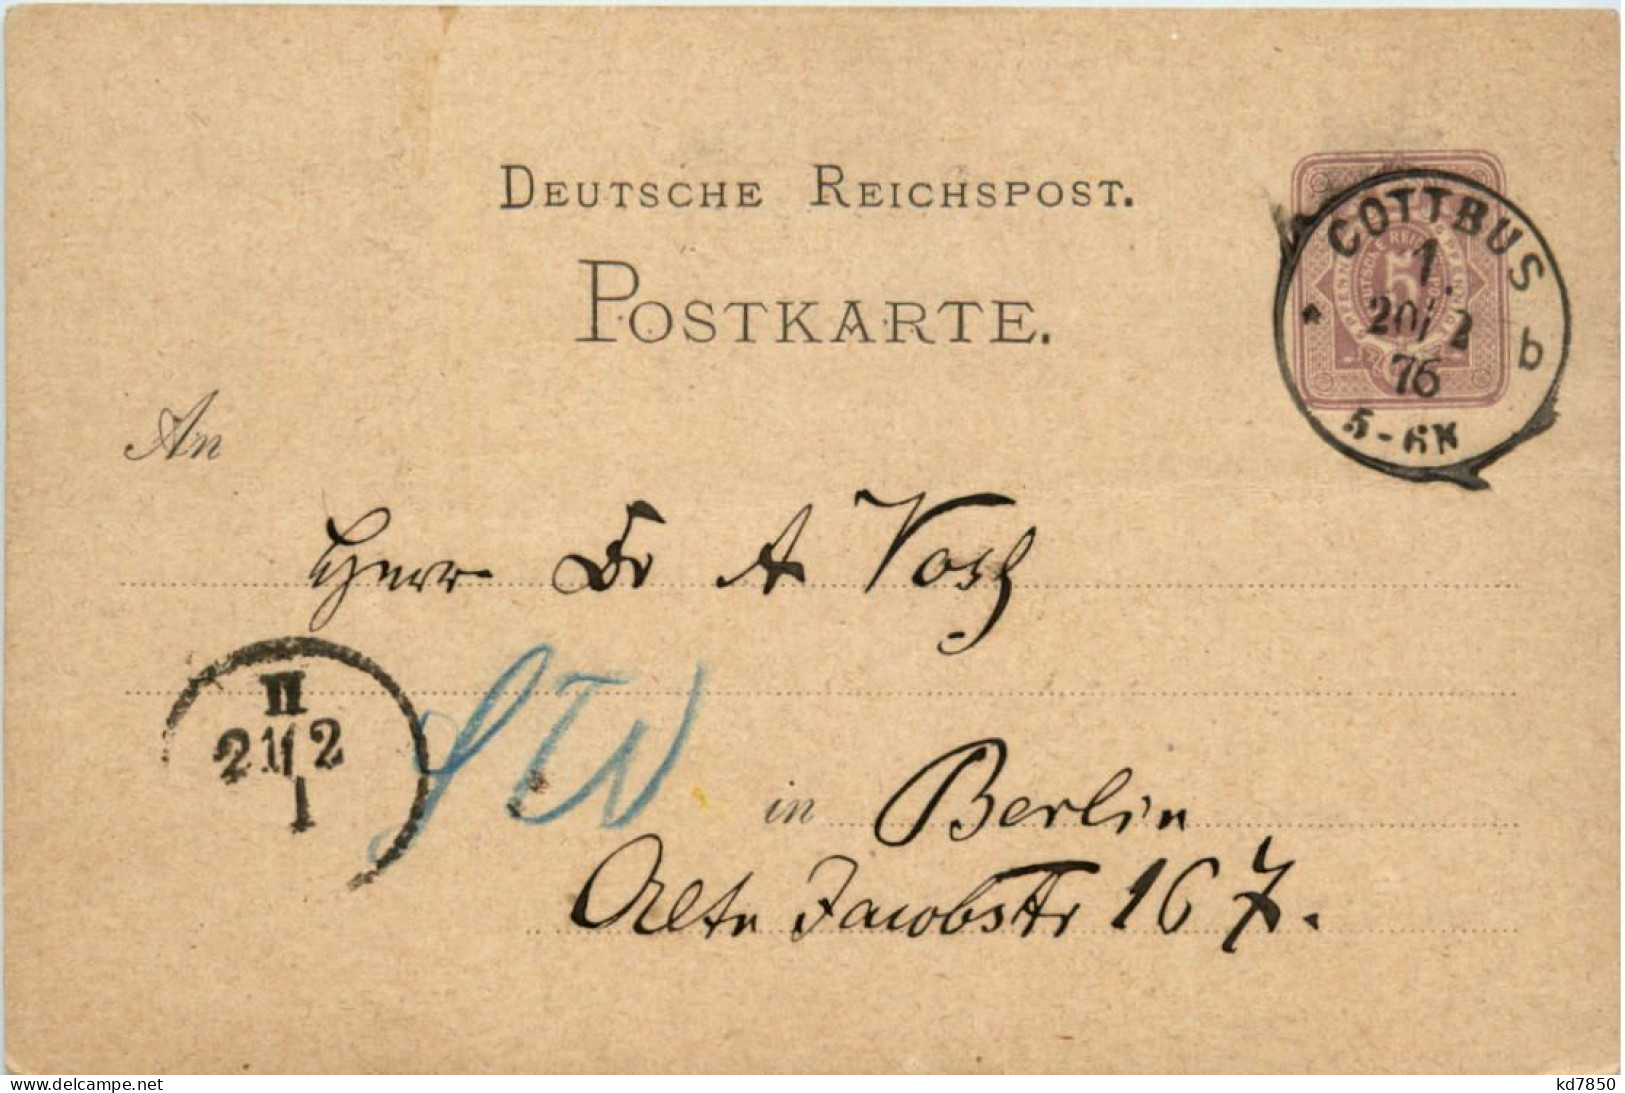 DEUTSCHE REICHSPOST.
POSTKARTE.
COTTBUS b
1.
20/2
76
5-6N
An
Herr Dr A Vosß
SW
II
21/2
1
in Berlin
Alte Jacobstr 167.
www.delcampe.net
kd7850